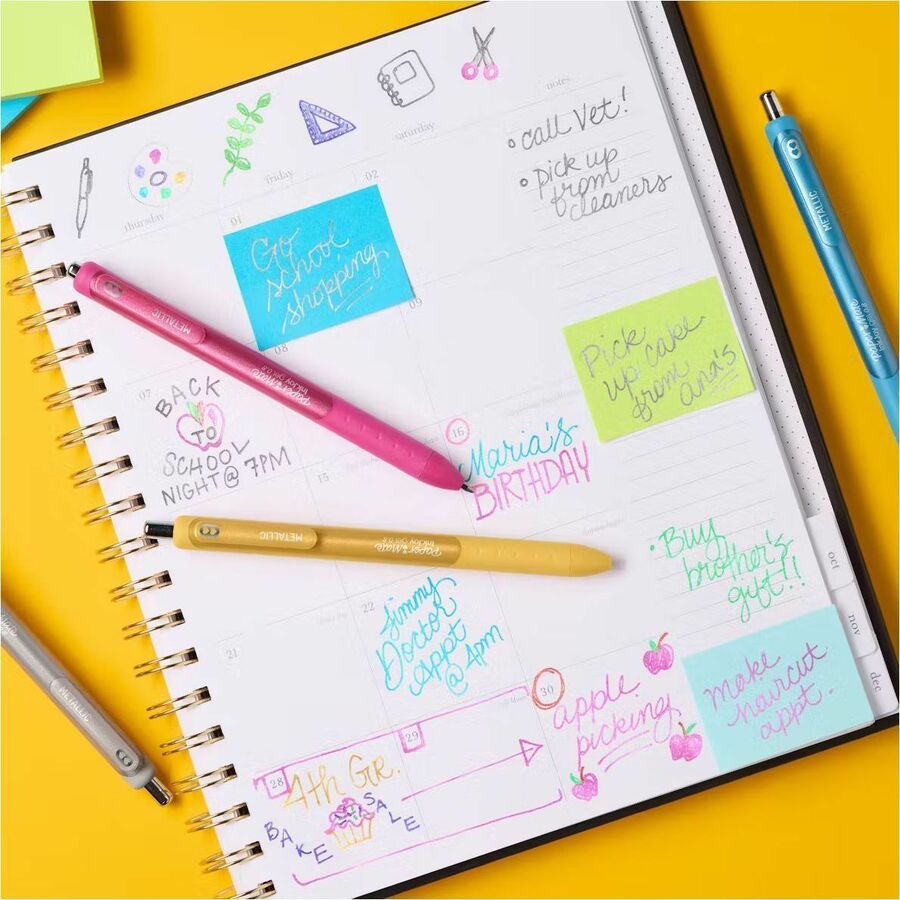 notes
saturday
friday
thursday
• call Vet!
• pick up
from
cleaners
01
02
Go
school
shopping
08
09
METALLIC
Paper Mate
InkJoy Gel 0.8
METALLIC
Paper Mate
InkJoy Gel 0.8
Pick
up cake
from
ana's
07
BACK
TO
SCHOOL
NIGHT @ 7PM
15
16
Maria's
BIRTHDAY
METALLIC
Paper Mate
InkJoy Gel 0.8
• Buy
brother's
gift!!
oct
nov
dec
21
22
Jimmy
Doctor
Appt
@ 4pm
make
haircut
appt.
30
apple
picking
28
29
4th Gr.
BAKE SALE
METALLIC